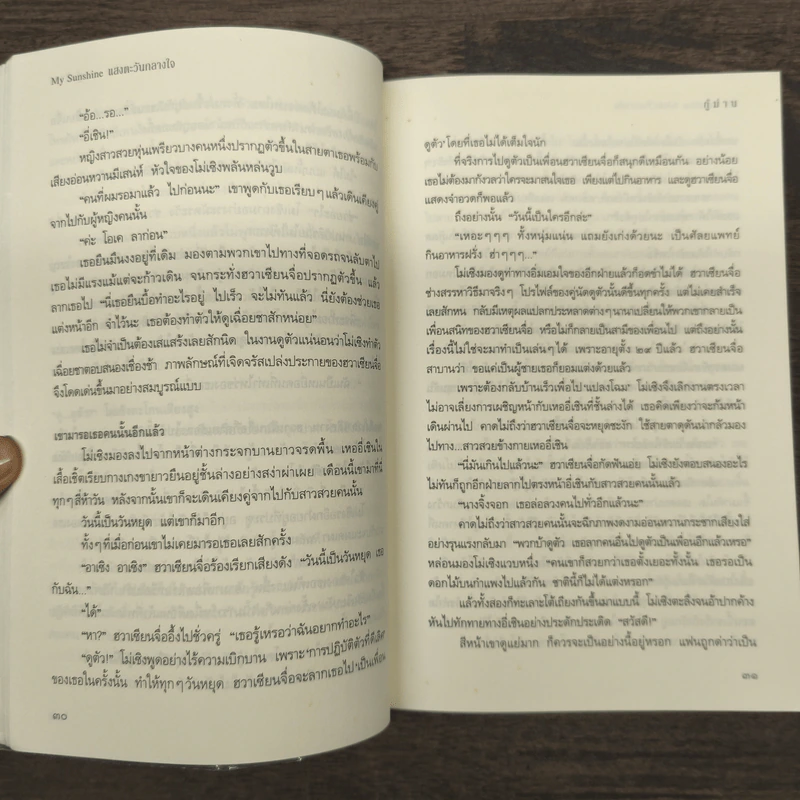 My Sunshine แสงตะวันกลางใจ
“อ้อ...รอ...”
“อี้เชิน!”
หญิงสาวสวยหุ่นเพรียวบางคนหนึ่งปรากฏตัวขึ้นในสายตาเธอพร้อมกับ
เสียงอ่อนหวานมีเสน่ห์ หัวใจของโม่เชิงพลันหล่นวูบ
“คนที่ผมรอมาแล้ว ไปก่อนนะ” เขาพูดกับเธอเรียบๆ แล้วเดินเคียงคู่
จากไปกับผู้หญิงคนนั้น
“ค่ะ โอเค ลาก่อน”
เธอยืนนิ่งงงอยู่ที่เดิม มองตามพวกเขาไปทางที่จอดรถจนลับตาไป
เธอไม่มีแรงแม้แต่จะก้าวเดิน จนกระทั่งฮวาเซียนจื่อปรากฏตัวขึ้น แล้ว
ลากเธอไป “นี่เธอยืนบื้อทำอะไรอยู่ ไปเร็ว จะไม่ทันแล้ว นี่ยังต้องช่วยเธอ
แต่งหน้าอีก จำไว้นะ เธอต้องทำตัวให้ดูเฉื่อยชาสักหน่อย”
เธอไม่จำเป็นต้องเสแสร้งเลยสักนิด ในงานดูตัวแน่นอนว่าโม่เชิงทำตัว
เฉื่อยชาตอบสนองเชื่องช้า ภาพลักษณ์ที่เจิดจรัสเปล่งประกายของฮวาเซียนจื่อ
จึงโดดเด่นขึ้นมาอย่างสมบูรณ์แบบ
เขามารอเธอคนนั้นอีกแล้ว
โม่เชิงมองลงไปจากหน้าต่างกระจกบานยาวจรดพื้น เหออี่เชินใน
เสื้อเชิ้ตเรียบกางเกงขายาวยืนอยู่ชั้นล่างอย่างสง่าผ่าเผย เดือนนี้เขามาที่นี่
ทุกๆ สี่ห้าวัน หลังจากนั้นเขาก็จะเดินเคียงคู่จากไปกับสาวสวยคนนั้น
วันนี้เป็นวันหยุด แต่เขาก็มาอีก
ทั้งๆ ที่เมื่อก่อนเขาไม่เคยมารอเธอเลยสักครั้ง
“อาเชิง อาเชิง” ฮวาเซียนจื่อร้องเรียกเสียงดัง “วันนี้เป็นวันหยุด เธอ
กับฉัน...”
“ได้”
“หา?” ฮวาเซียนจื่ออึ้งไปชั่วครู่ “เธอรู้เหรอว่าฉันอยากทำอะไร”
“ดูตัว!” โม่เชิงพูดอย่างไร้ความเบิกบาน เพราะ ‘การปฏิบัติตัวที่ดีเลิศ’
ของเธอในครั้งนั้น ทำให้ทุกๆ วันหยุด ฮวาเซียนจื่อจะลากเธอไป ‘เป็นเพื่อน
๓๐
กู้ม่าน
ดูตัว’ โดยที่เธอไม่ได้เต็มใจนัก
ที่จริงการไปดูตัวเป็นเพื่อนฮวาเซียนจื่อก็สนุกดีเหมือนกัน อย่างน้อย
เธอไม่ต้องมากังวลว่าใครจะมาสนใจเธอ เพียงแต่ไปกินอาหาร และดูฮวาเซียนจื่อ
แสดงจำอวดก็พอแล้ว
ถึงอย่างนั้น “วันนี้เป็นใครอีกล่ะ”
“เหอะๆๆๆ ทั้งหนุ่มแน่น แถมยังเก่งด้วยนะ เป็นศัลยแพทย์
กินอาหารฝรั่ง ฮ่าๆๆๆ...”
โม่เชิงมองดูท่าทางอิ่มเอมใจของอีกฝ่ายแล้วก็อดขำไม่ได้ ฮวาเซียนจื่อ
ช่างสรรหาวิธีมาจริงๆ โปรไฟล์ของคู่นัดดูตัวนั้นดีขึ้นทุกครั้ง แต่ไม่เคยสำเร็จ
เลยสักหน กลับมีเหตุผลแปลกประหลาดต่างๆ นานาเปลี่ยนให้พวกเขากลายเป็น
เพื่อนสนิทของฮวาเซียนจื่อ หรือไม่ก็กลายเป็นสามีของเพื่อนไป แต่ถึงอย่างนั้น
เรื่องนี้ไม่ใช่จะมาทำเป็นเล่นๆ ได้ เพราะอายุตั้ง ๒๙ ปีแล้ว ฮวาเซียนจื่อ
สาบานว่า ขอแค่เป็นผู้ชายเธอก็ยอมแต่งด้วยแล้ว
เพราะต้องกลับบ้านเร็วเพื่อไป ‘แปลงโฉม’ โม่เชิงจึงเลิกงานตรงเวลา
ไม่อาจเลี่ยงการเผชิญหน้ากับเหออี่เชินที่ชั้นล่างได้ เธอคิดเพียงว่าจะก้มหน้า
เดินผ่านไป คาดไม่ถึงว่าฮวาเซียนจื่อจะหยุดชะงัก ใช้สายตาดุดันน่ากลัวมอง
ไปทาง...สาวสวยข้างกายเหออี่เชิน
“นี่มันเกินไปแล้วนะ” ฮวาเซียนจื่อกัดฟันเอ่ย โม่เชิงยังตอบสนองอะไร
ไม่ทันก็ถูกอีกฝ่ายลากไปตรงหน้าอี่เชินกับสาวสวยคนนั้นแล้ว
“นางจิ้งจอก เธอล่อลวงคนไปทั่วอีกแล้วนะ”
คาดไม่ถึงว่าสาวสวยคนนั้นจะฉีกภาพงดงามอ่อนหวานกระชากเสียงใส่
อย่างรุนแรงกลับมา “พวกบ้าดูตัว เธอลากคนอื่นไปดูตัวเป็นเพื่อนอีกแล้วเหรอ”
หล่อนมองโม่เชิงแวบหนึ่ง “คนเขาก็สวยกว่าเธอตั้งเยอะทั้งนั้น เธอรอเป็น
ดอกไม้บนกำแพงไปแล้วกัน ชาตินี้ก็ไม่ได้แต่งหรอก”
แล้วทั้งสองก็ทะเลาะโต้เถียงกันขึ้นมาแบบนี้ โม่เชิงตะลึงจนอ้าปากค้าง
หันไปทักทายทางอี่เชินอย่างประดักประเดิด “สวัสดี!”
สีหน้าเขาดูแย่มาก ก็ควรจะเป็นอย่างนี้อยู่หรอก แฟนถูกด่าว่าเป็น
๓๑